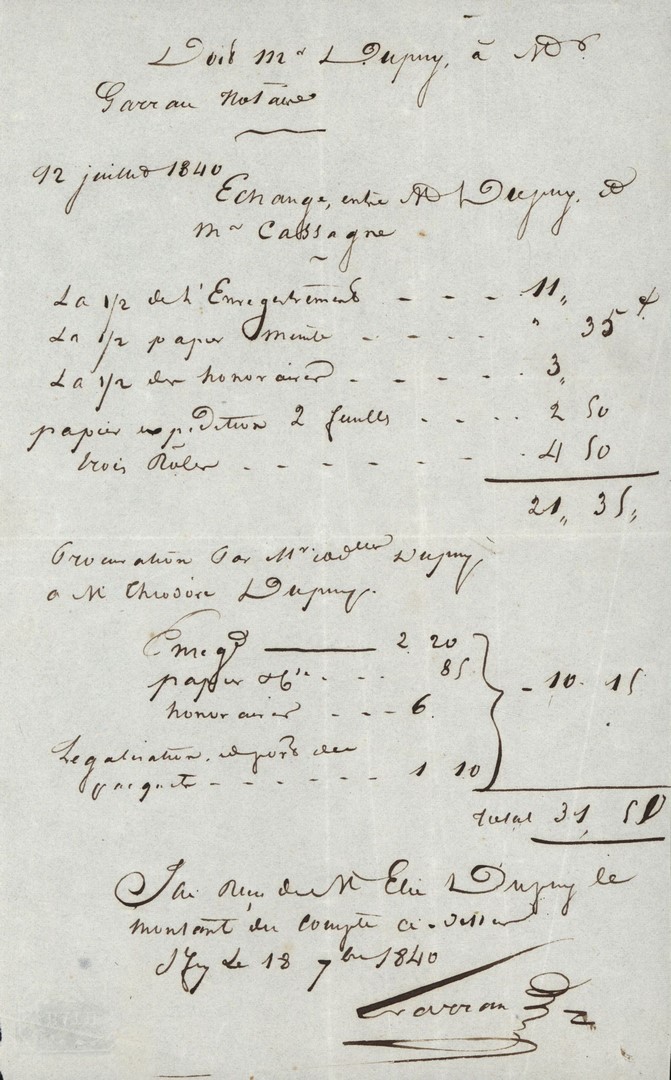 Doit Mr Dupuy, à Me
Garrau Notaire
12 juillet 1840
Echange, entre M Dupuy, et
Mr Cassagne
La 1/2 de l'Enregistrement - - - 11 „
La 1/2 papier Minute - - - - " 35
La 1/2 des honoraires - - - - 3 „
papier expédition 2 feuilles - - - 2 50
trois Rôles - - - - - - - 4 50
21 „ 35 „
Procuration Par Mr Dupuy
a M Théodore Dupuy.
Enregt — 2 20
papier - - - 85 - 10 15
honoraires - - - 6
Légalisation, et port de
paquets - - - - - - 1 10
total 31 50
J'ai Reçu de M Elie Dupuy le
montant du compte ci-dessus
Le 18 7bre 1840
Garrau